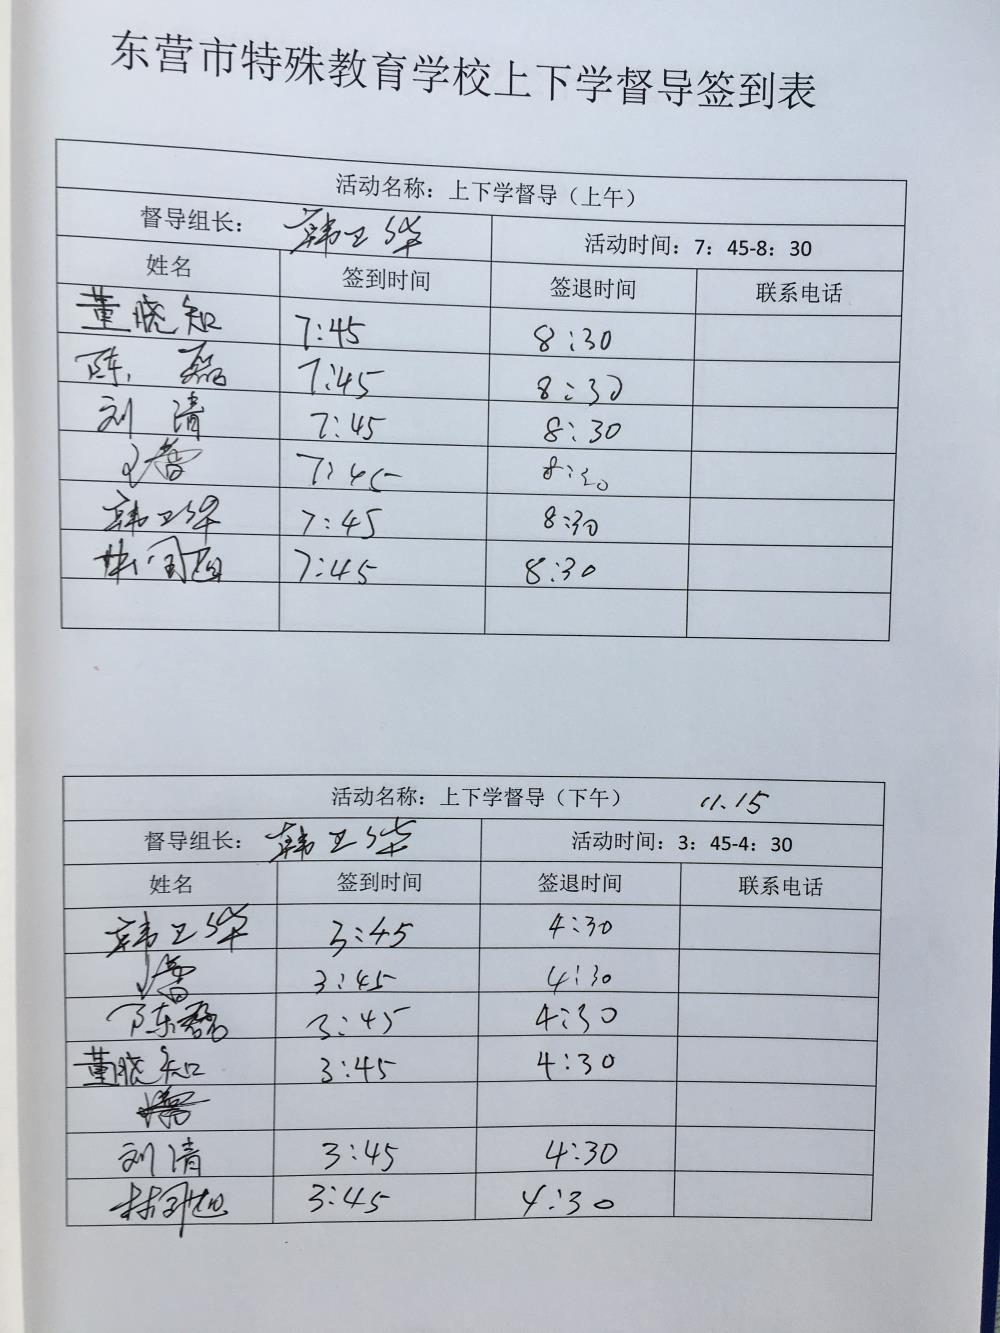 东营市特殊教育学校上下学督导签到表
活动名称：上下学督导（上午）
督导组长： 韩卫华 活动时间：7：45-8：30
姓名 签到时间 签退时间 联系电话
董晓知 7:45 8:30
陈磊 7:45 8:30
刘清 7:45 8:30
7:45 8:30
韩卫华 7:45 8:30
7:45 8:30
活动名称：上下学督导（下午） 11.15
督导组长： 韩卫华 活动时间：3：45-4：30
姓名 签到时间 签退时间 联系电话
韩卫华 3:45 4:30
3:45 4:30
陈磊 3:45 4:30
董晓知 3:45 4:30
刘清 3:45 4:30
3:45 4:30